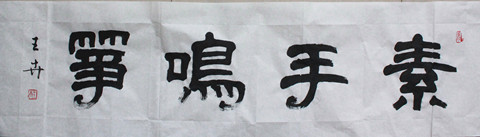 素手鳴箏
王卉